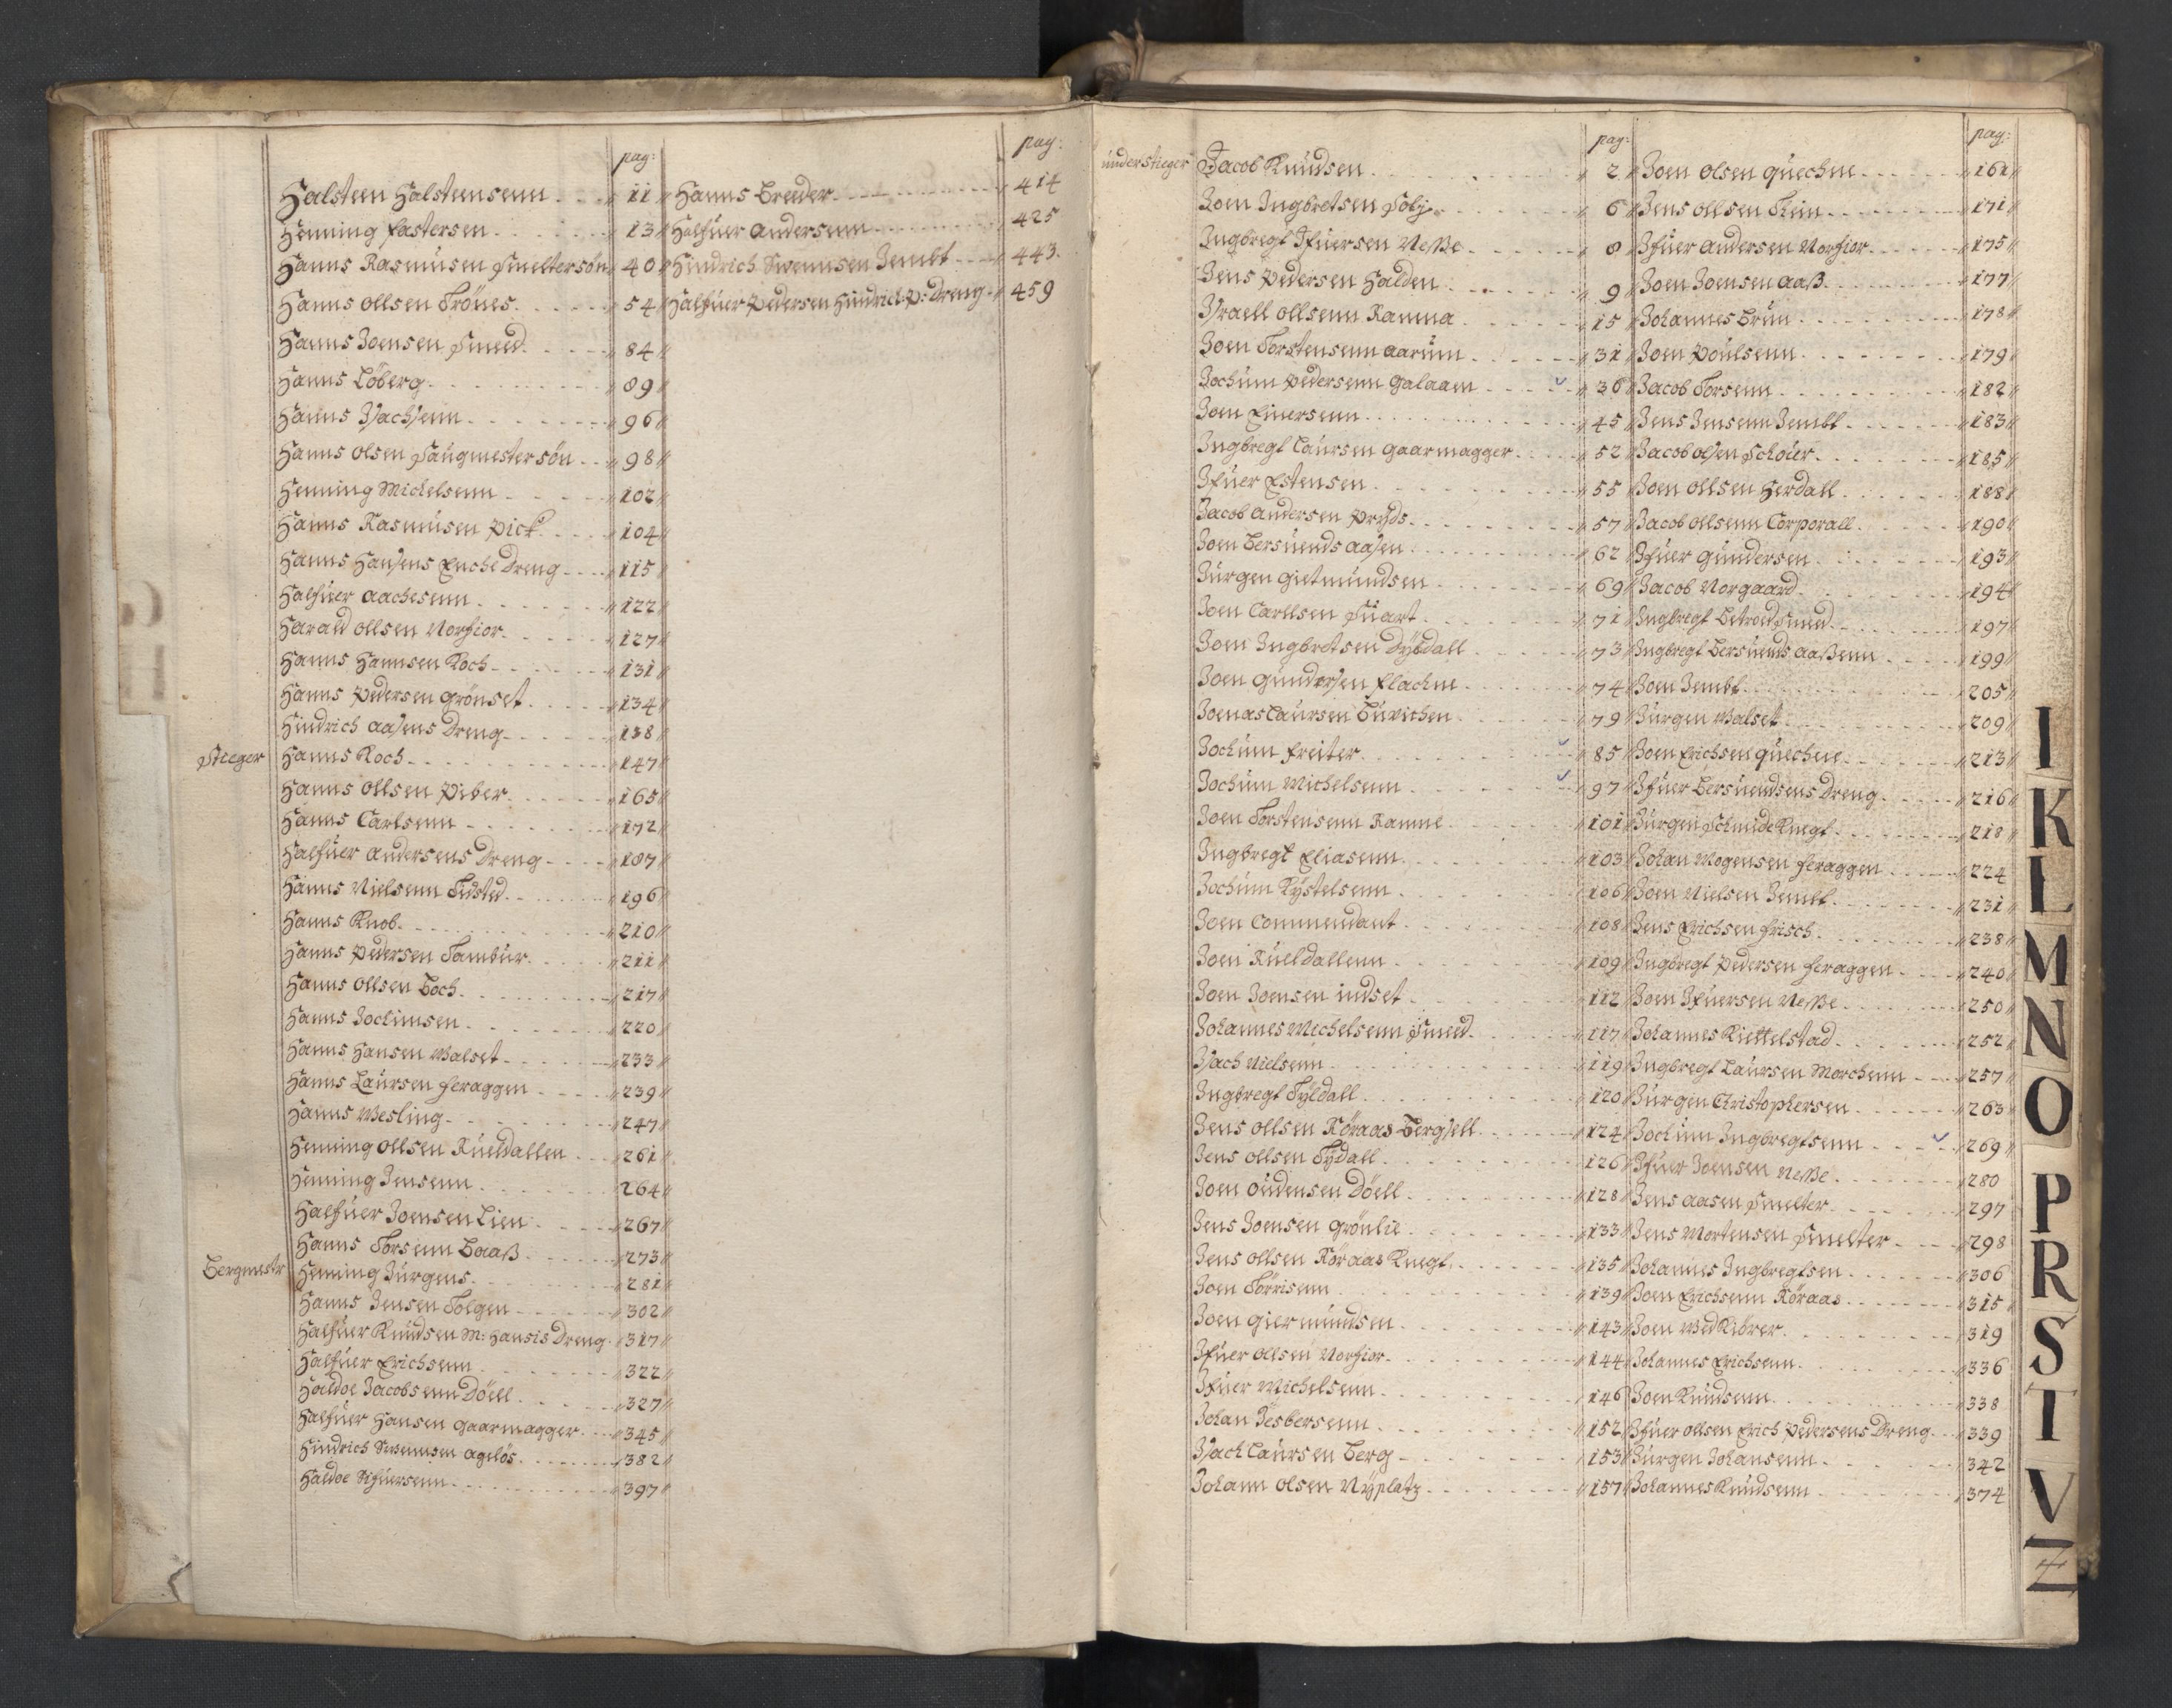 pag:
Halsteen Halsteensenn 11
Henning Pastersen 13
Hanns Rasmusen Smeltersön 40
Hanns Ollsen Trönes 54
Hanns Joensen Smed 84
Hanns Löberg 89
Hanns Isachsenn 96
Hanns Olsen Saugmestersön 98
Henning Michelsenn 102
Hanns Rasmusen Pick 104
Hanns Hansens Enche Dreng 115
Halfuer Aachesenn 122
Harald Ollsen Norfior 127
Hanns Hannsen Koch 131
Hanns Pedersen Grönset 134
Hindrich Aasens Dreng 138
Stieger Hanns Koch 147
Hanns Ollsen Piber 165
Hanns Carlsenn 172
Halfuer Andersens Dreng 187
Hanns Nielsenn Tidsted 196
Hanns Knob 210
Hanns Pedersen Tambur 211
Hanns Ollsen Boch 217
Hanns Jochimsen 220
Hanns Hansen Walset 233
Hanns Laursen Feraggen 239
Hanns Wesling 247
Henning Ollsen Rueldallen 261
Henning Jensenn 264
Halfuer Joensen Lien 267
Hanns Torsenn Baaß 273
Bergmestr Henning Jürgens 281
Hanns Jensen Tolgen 302
Halfuer Knudsen M: Hansis Dreng 317
Halfuer Erichsenn 322
Haldoe Jacobsenn Döell 327
Halfuer Hansen Gaarmagger 345
Hindrich Swennsen Agelös 382
Haldoe Sifuersenn 397
pag:
Hanns Breeder 414
Halfuer Andersenn 425
Hindrich Swennsen Jembt 443
Halfuer Pedersen Hindrich P: Dreng 459
pag:
understieger Jacob Knudsen 2
Joen Ingbretsen Solj 6
Ingbregt Ifuersen Neße 8
Jens Pedersen Halden 9
Israell Ollsenn Ramma 15
Joen Torstensenn Aarum 31
Jochum Pedersenn Galaaen 36
Joen Einersenn 45
Ingbregt Laursen Gaarmagger 52
Ifuer Estensen 55
Jacob Andersen Pryds 57
Joen Bersuends Aasen 62
Jürgen Gietmundsen 69
Joen Carllsen Suart 71
Joen Ingbretsen Dybdall 73
Joen Gundersen Flachne 74
Joenas Laursen Buvichen 79
Jochum Freiter 85
Jochum Michelsenn 97
Joen Torstensenn Ramme 101
Ingbregt Eliasenn 103
Jochum Kystelsenn 106
Joen Commendant 108
Joen Rueldallenn 109
Joen Joensen indset 112
Johannes Mechelsenn Smed 117
Isach Nielsenn 119
Ingbregt Tyldall 120
Jens Ollsen Röraas Bergsell 124
Jens Ollsen Tydall 126
Joen Oudensen Döell 128
Jens Joensen Grönlie 133
Jens Ollsen Röraas Knegt 135
Joen Torrisenn 139
Joen Giermundsen 143
Ifuer Ollsen Norfior 144
Ifuer Michelsenn 146
Johan Jesbersenn 152
Isach Laursen Berg 153
Johann Olsen Nyplatz 157
pag:
Joen Olsen Quechne 161
Jens Ollsen Tein 171
Ifuer Andersen Norfior 175
Joen Joensen Aaß 177
Johannes Brun 178
Joen Poulsenn 179
Jacob Torsenn 182
Jens Jensenn Jembt 183
Jacob Olsen Schouer 185
Joen Ollsen Herdall 188
Jacob Ollsenn Corporall 190
Ifuer Gundersen 193
Jacob Norgaard 194
Ingbregt Smed 197
Ingbregt Bersuends Aaßenn 199
Joen Jembt 205
Jürgen Walset 209
Joen Erichsen Quechne 213
Ifuer Bersuendsens Dreng 216
Jürgen Schmide Knegt 218
Johan Mogensen Feraggen 224
Joen Nielsen Jembt 231
Jens Erichsen Frisch 238
Ingbregt Pedersen Feraggen 240
Joen Ifuersen Neße 250
Johannes Kiettelstad 252
Ingbregt Laursen Morchenn 257
Jürgen Christophersen 263
Jochum Ingbregtsenn 269
Ifuer Joensen Neße 280
Jens Aasen Smelter 297
Jens Mortensen Smelter 298
Johannes Ingbregtsen 306
Joen Erichsenn Röraas 315
Joen Wedkiörer 319
Johannes Erichsenn 336
Joen Knudsenn 338
Ifuer Ollsen Erich Pedersens Dreng 339
Jürgen Johansenn 342
Johannes Knudsenn 374
I
K
L
M
N
O
P
R
S
T
V
Z